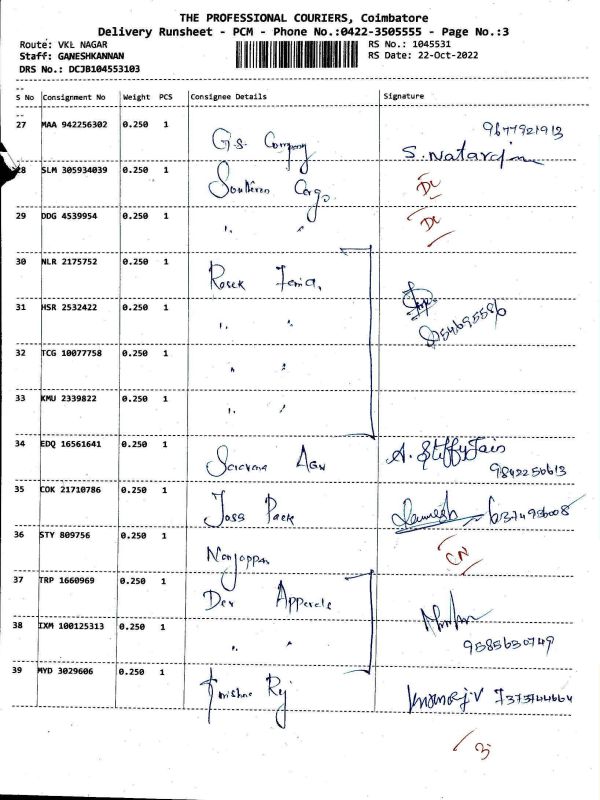 THE PROFESSIONAL COURIERS, Coimbatore
Delivery Runsheet - PCM - Phone No.:0422-3505555 - Page No.:3
Route: VKL NAGAR RS No.: 1045531
Staff: GANESHKANNAN RS Date: 22-Oct-2022
DRS No.: DCJB104553103
S No Consignment No Weight PCS Consignee Details Signature
27 MAA 942256302 0.250 1 G.S. Company S. Natarajan 9677921913
28 SLM 305934039 0.250 1 Southern Cargo DL
29 DDG 4539954 0.250 1 " " DL
30 NLR 2175752 0.250 1
31 HSR 2532422 0.250 1 " "
32 TCG 10077758 0.250 1 " "
33 KMU 2339822 0.250 1 " "
34 EDQ 16561641 0.250 1 Saravana Agn A. Steffy Jais 9842250613
35 COK 21710786 0.250 1 Joss Pack 6374956008
36 STY 809756 0.250 1 Nanjappan CN
37 TRP 1660969 0.250 1 Dev Apperels
38 IXM 100125313 0.250 1 " " 9585630749
39 MYD 3029606 0.250 1 Krishna Raj Manoj.V 7373744664
3